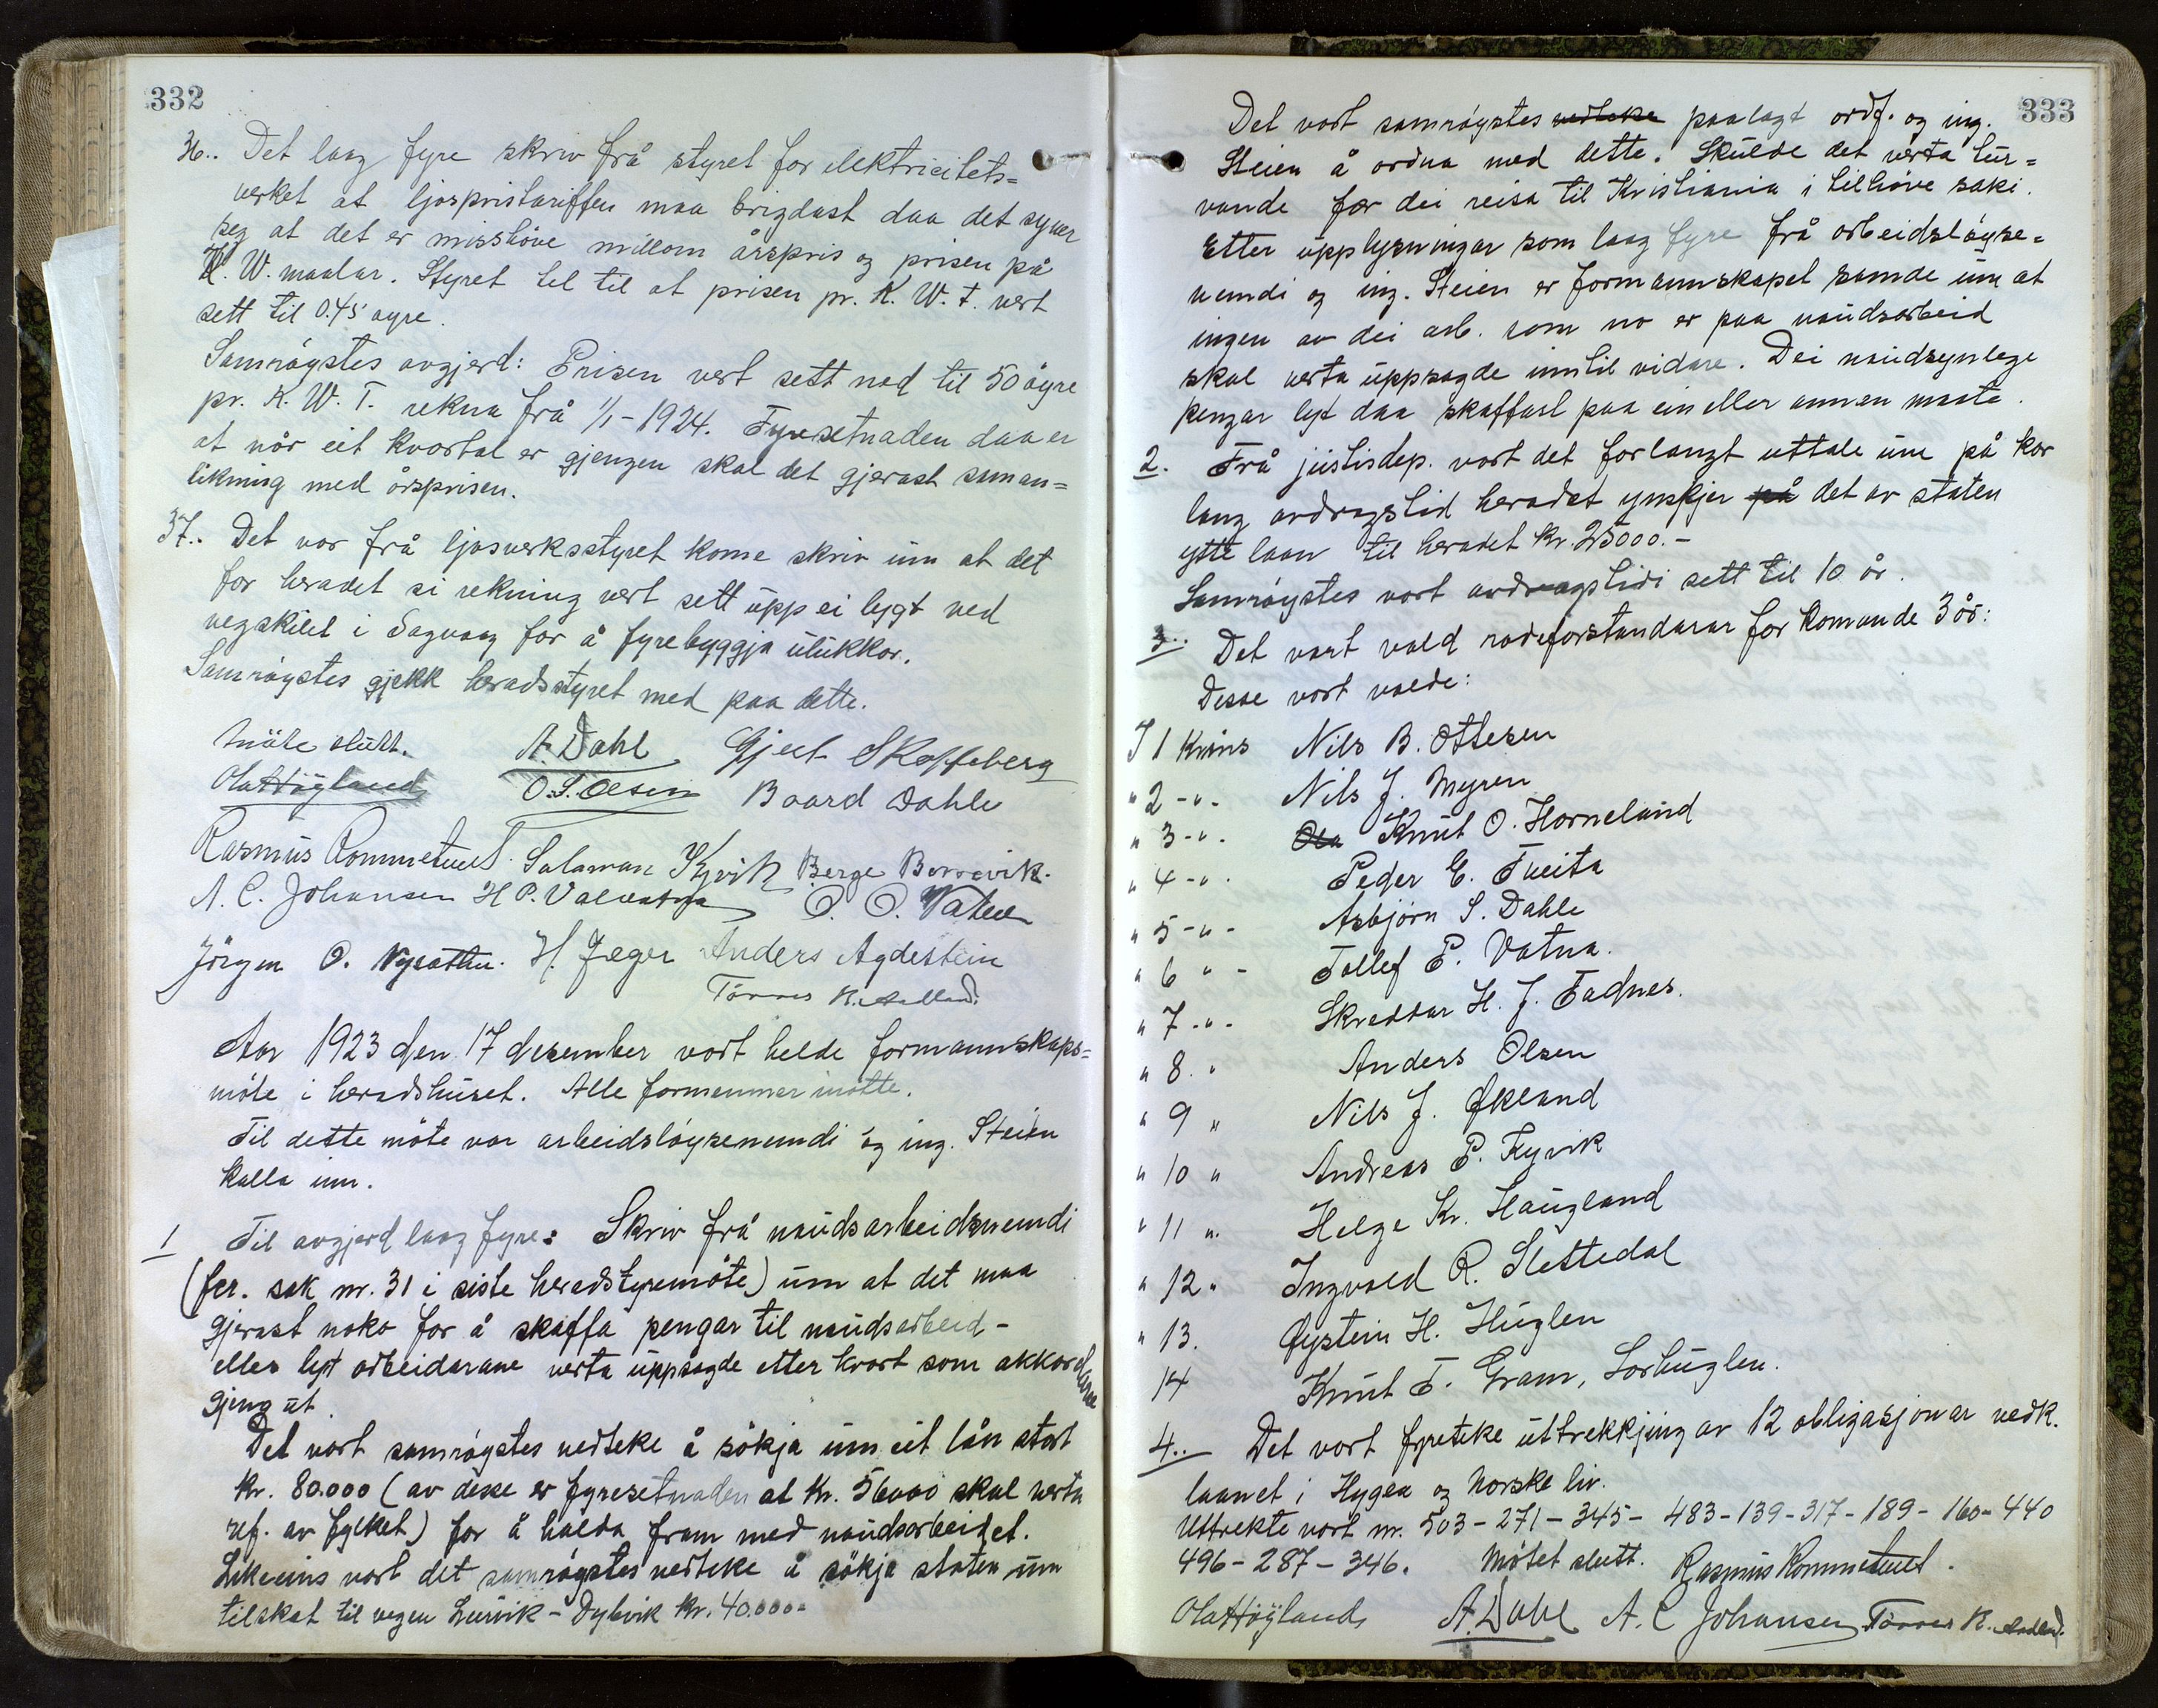 332
36.. Det laag fyre skriv frå styret for elektricitets=
verket at ljospristariffen maa brigdast daa det syner
seg at det er misshöve millom årspris og prisen på
K. W. maalar. Styret tel til at prisen pr. K. W. t. vert
sett til 0.45 øyre.
Samröystes avgjerd: Prisen vert sett ned til 50 öyre
pr. K. W. T. rekna frå 1/1-1924. Fyresetnaden daa er
at når eit kvartal er gjengen skal det gjerast saman=
likning med årsprisen.
37.. Det var frå ljosverksstyret kome skriv um at det
for heradet si rekning vert sett upp ei lygt ved
vegskilet i Sagvaag for å fyrebyggja ulukkor.
Samröystes gjekk heradsstyret med paa dette.
Möte slutt. A. Dahl Gjert Skoffsberg
Ola Höyland O. S. Olsen Baard Dahle
Rasmus Rommetveit. Salamon Kyvik Berge Borrevik.
A. C. Johansen H P. Valvatna O. O. Vatna
Jörgen O. Nysæther. H. Jæger Anders Agdestein
Törres K. Aadland.
Aar 1923 den 17 desember vart helde formannskaps=
möte i heradshuset. Alle formenner mötte.
Til dette möte var arbeidslöysenemndi og ing. Steien
kalla inn.
1 Til avgjerd laag fyre: Skriv frå naudsarbeidsnemndi
(fer. sak nr. 31 i siste heradstyremöte) um at det maa
gjerast noko for å skaffa pengar til naudsarbeid -
elles lyt arbeidarane verta uppsagde etter kvart som akkordarne
gjeng ut.
Det vart samröystes vedteke å sökja um eit lån stort
kr. 80.000 (av desse er fyresetnaden at kr. 56000 skal verta
ref. av fylket) for å halda fram med naudsarbeidet.
Likeeins vart det samröystes vedteke å sökja staten um
tilskot til vegen Lurvik - Dybvik kr. 40.000=
333
Det vart samröystes vedteke paalagt ordf. og ing.
Steien å ordna med dette. Skulde det verta tur=
vande fær dei reisa til Kristiania i tilhöve saki.
Etter upplysningar som laag fyre frå arbeidslöyse=
nemndi og ing. Steien er formannskapet samde um at
ingen av dei arb. som no er paa naudsarbeid
skal verta uppsagde inntil vidare. Dei naudsynlege
pengar lyt daa skaffast paa ein eller annen maate.
2. Frå justisdep. vart det forlangt uttale um på kor
lang avdragstid heradet ynskjer på det av staten
ytte laan til heradet kr. 25000.-
Samröystes vart avdragstidi sett til 10 år.
3.. Det vart vald rodeforstandarar for komande 3 år:
Desse vart valde:
I 1 Krins Nils B. Ottesen
" 2 -"- Nils J. Myren
" 3 -". Ola Knut O. Horneland
" 4 -". Peder E. Tveita
" 5 -"- Asbjörn S. Dahle
" 6 " - Tollef P. Vatna.
" 7 -"- Skreddar H. J. Fadnes.
" 8. " Anders Olsen
" 9 " Nils J. Økland
" 10 " Andreas P. Kyvik
" 11 ". Helge Kr. Haugland
" 12 " Ingvald R. Slettedal
" 13. Øystein H. Huglen
14 Knut T. Gram, Sorhuglen.
4.. Det vart fyreteke uttrekkjing av 12 obligasjonar vedk.
laanet i Hygea og Norske liv.
Uttrekte vart nr. 503 - 271 - 345 - 483 - 139 - 317 - 189 - 160 - 440
496 - 287 - 346. Mötet slutt. Rasmus Rommetveit.
Ola Höyland A. Dahl A. C Johansen Törres K. Aadland.